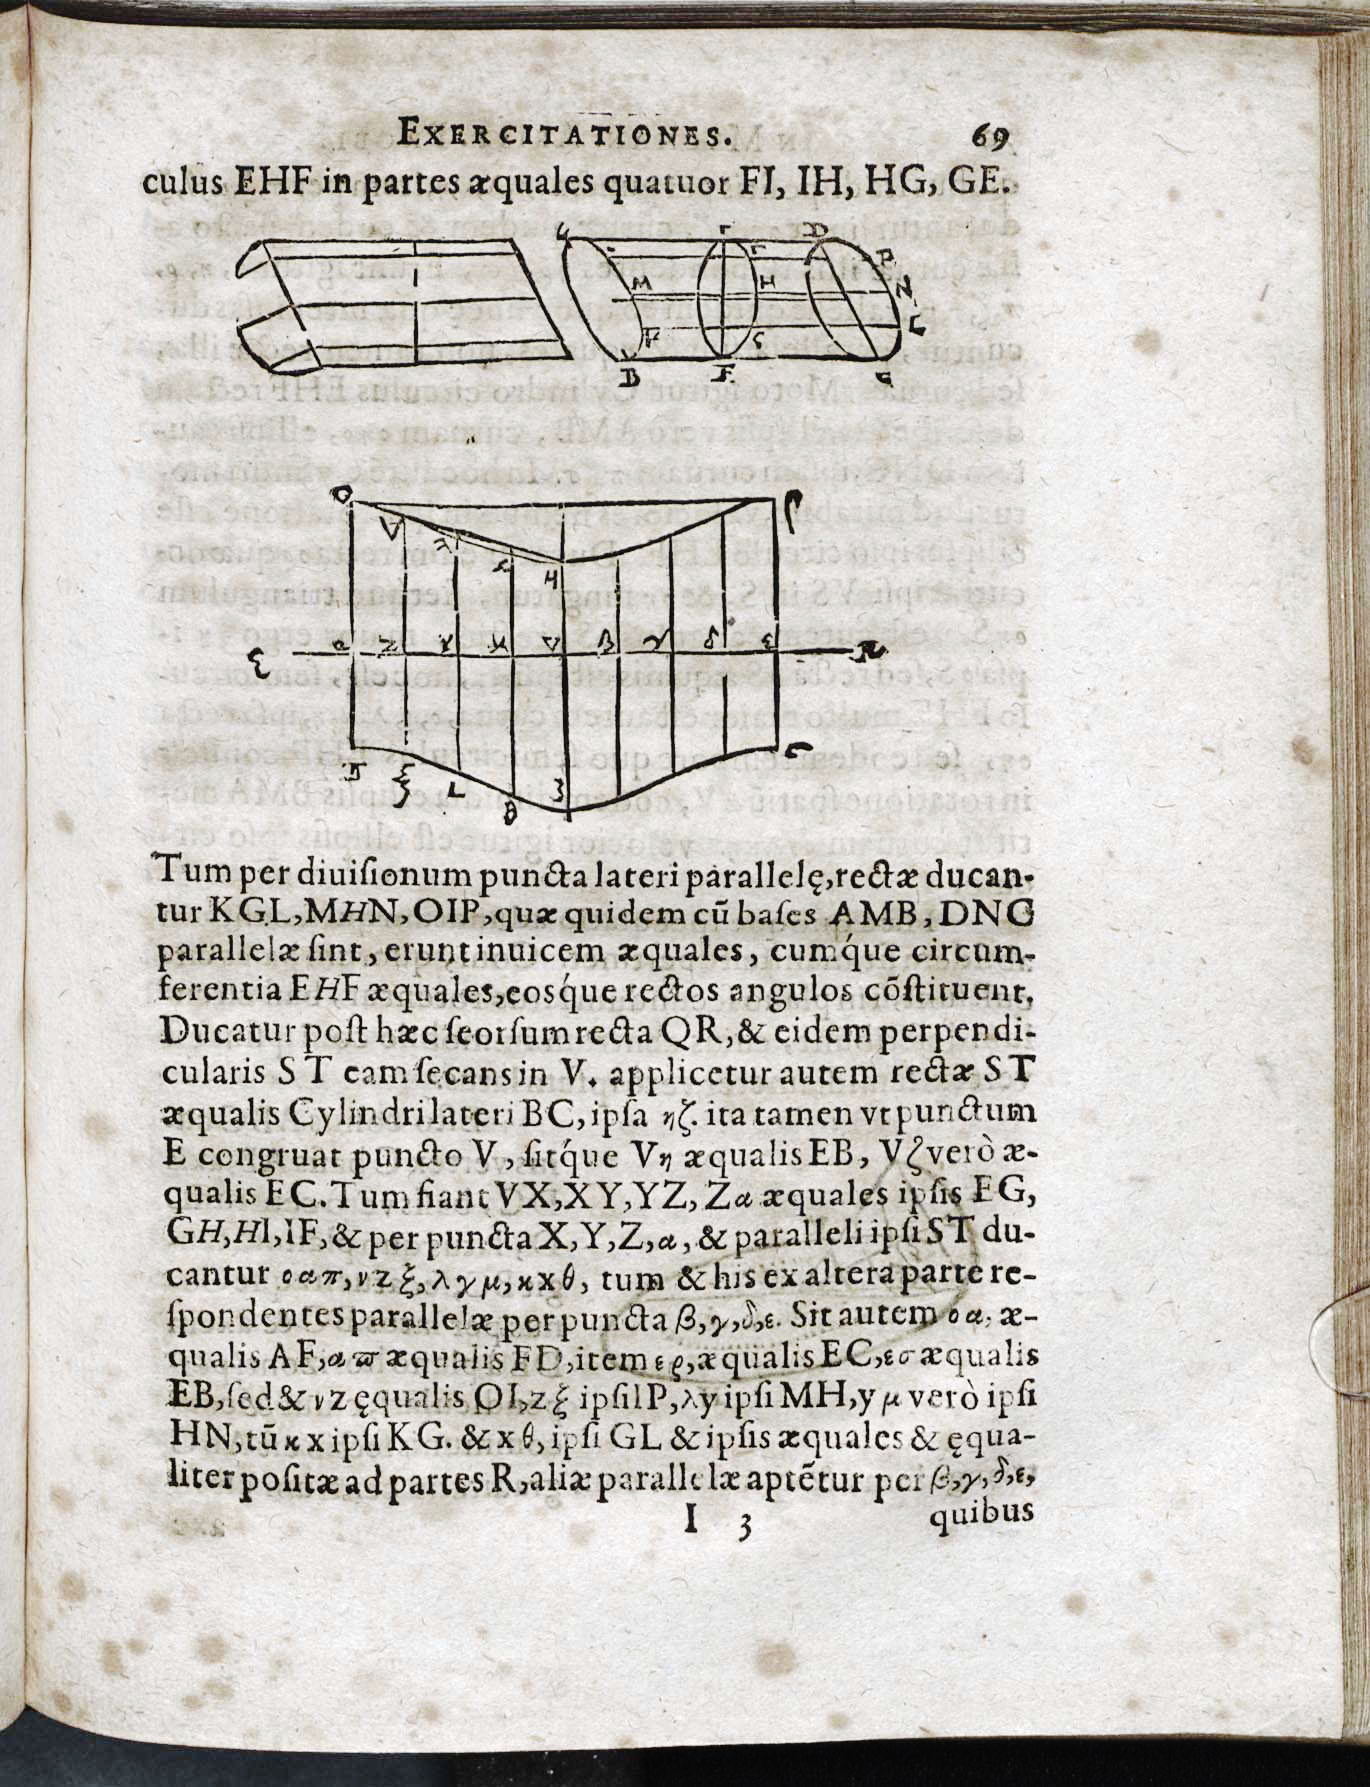 EXERCITATIONES. 69
culus EHF in partes æquales quatuor FI, IH, HG, GE.
D
P
M H N
B F
O
H
B F
Tum per diuiſionum puncta lateri parallelę, rectæ ducan-
tur KGL, MHN, OIP, quæ quidem cũ baſes AMB, DNC
parallelæ ſint, erunt inuicem æquales, cumq́ue circum-
ferentia EHF æquales, eosq́ue rectos angulos cõſtituent.
Ducatur poſt hæc ſeorſum recta QR, & eidem perpendi-
cularis S T eam ſecans in V. applicetur autem rectæ S T
æqualis Cylindri lateri BC, ipſa ηζ. ita tamen vt punctum
E congruat puncto V, ſitq́ue Vη æqualis EB, Vζ verò æ-
qualis EC. Tum fiant VX, XY, YZ, Zα æquales ipſis EG,
GH, HI, IF, & per puncta X, Y, Z, α, & paralleli ipſi ST du-
cantur οαπ, νzξ, λγμ, κxθ, tum & his ex altera parte re-
ſpondentes parallelæ per puncta β, γ, δ, ε. Sit autem οα, æ-
qualis AF, αϖ æqualis FD, item ερ, æqualis EC, εσ æqualis
EB, ſed & νz ęqualis OI, zξ ipſi IP, λy ipſi MH, y μ verò ipſi
HN, tũ κx ipſi KG. & xθ, ipſi GL & ipſis æquales & ęqua-
liter poſitæ ad partes R, aliæ parallelæ aptẽtur per β, γ, δ, ε,
I 3 quibus